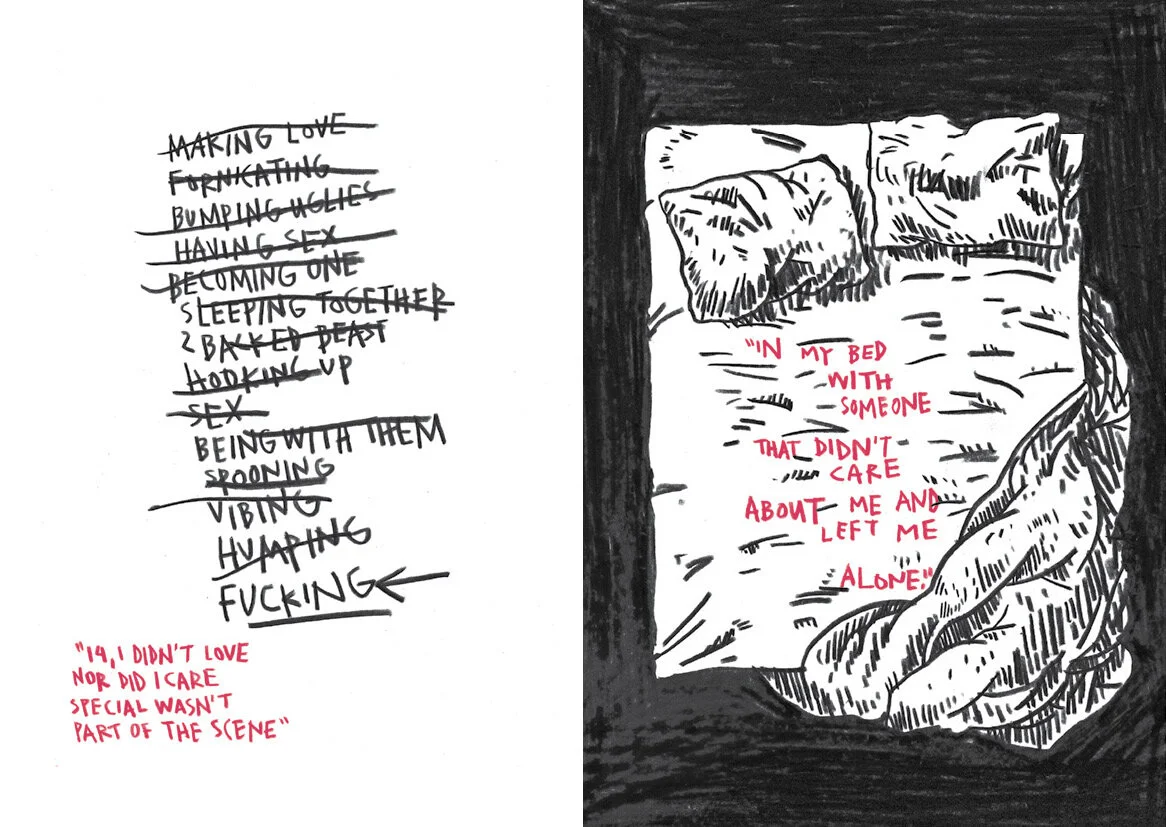 MAKING LOVE
FORNICATING
BUMPING UGLIES
HAVING SEX
BECOMING ONE
SLEEPING TOGETHER
2 BACKED BEAST
HOOKING UP
SEX
BEING WITH THEM
SPOONING
VIBING
HUMPING
FUCKING
"14, I DIDN'T LOVE
NOR DID I CARE
SPECIAL WASN'T
PART OF THE SCENE"
"IN MY BED
WITH
SOMEONE
THAT DIDN'T
CARE
ABOUT ME AND
LEFT ME
ALONE."